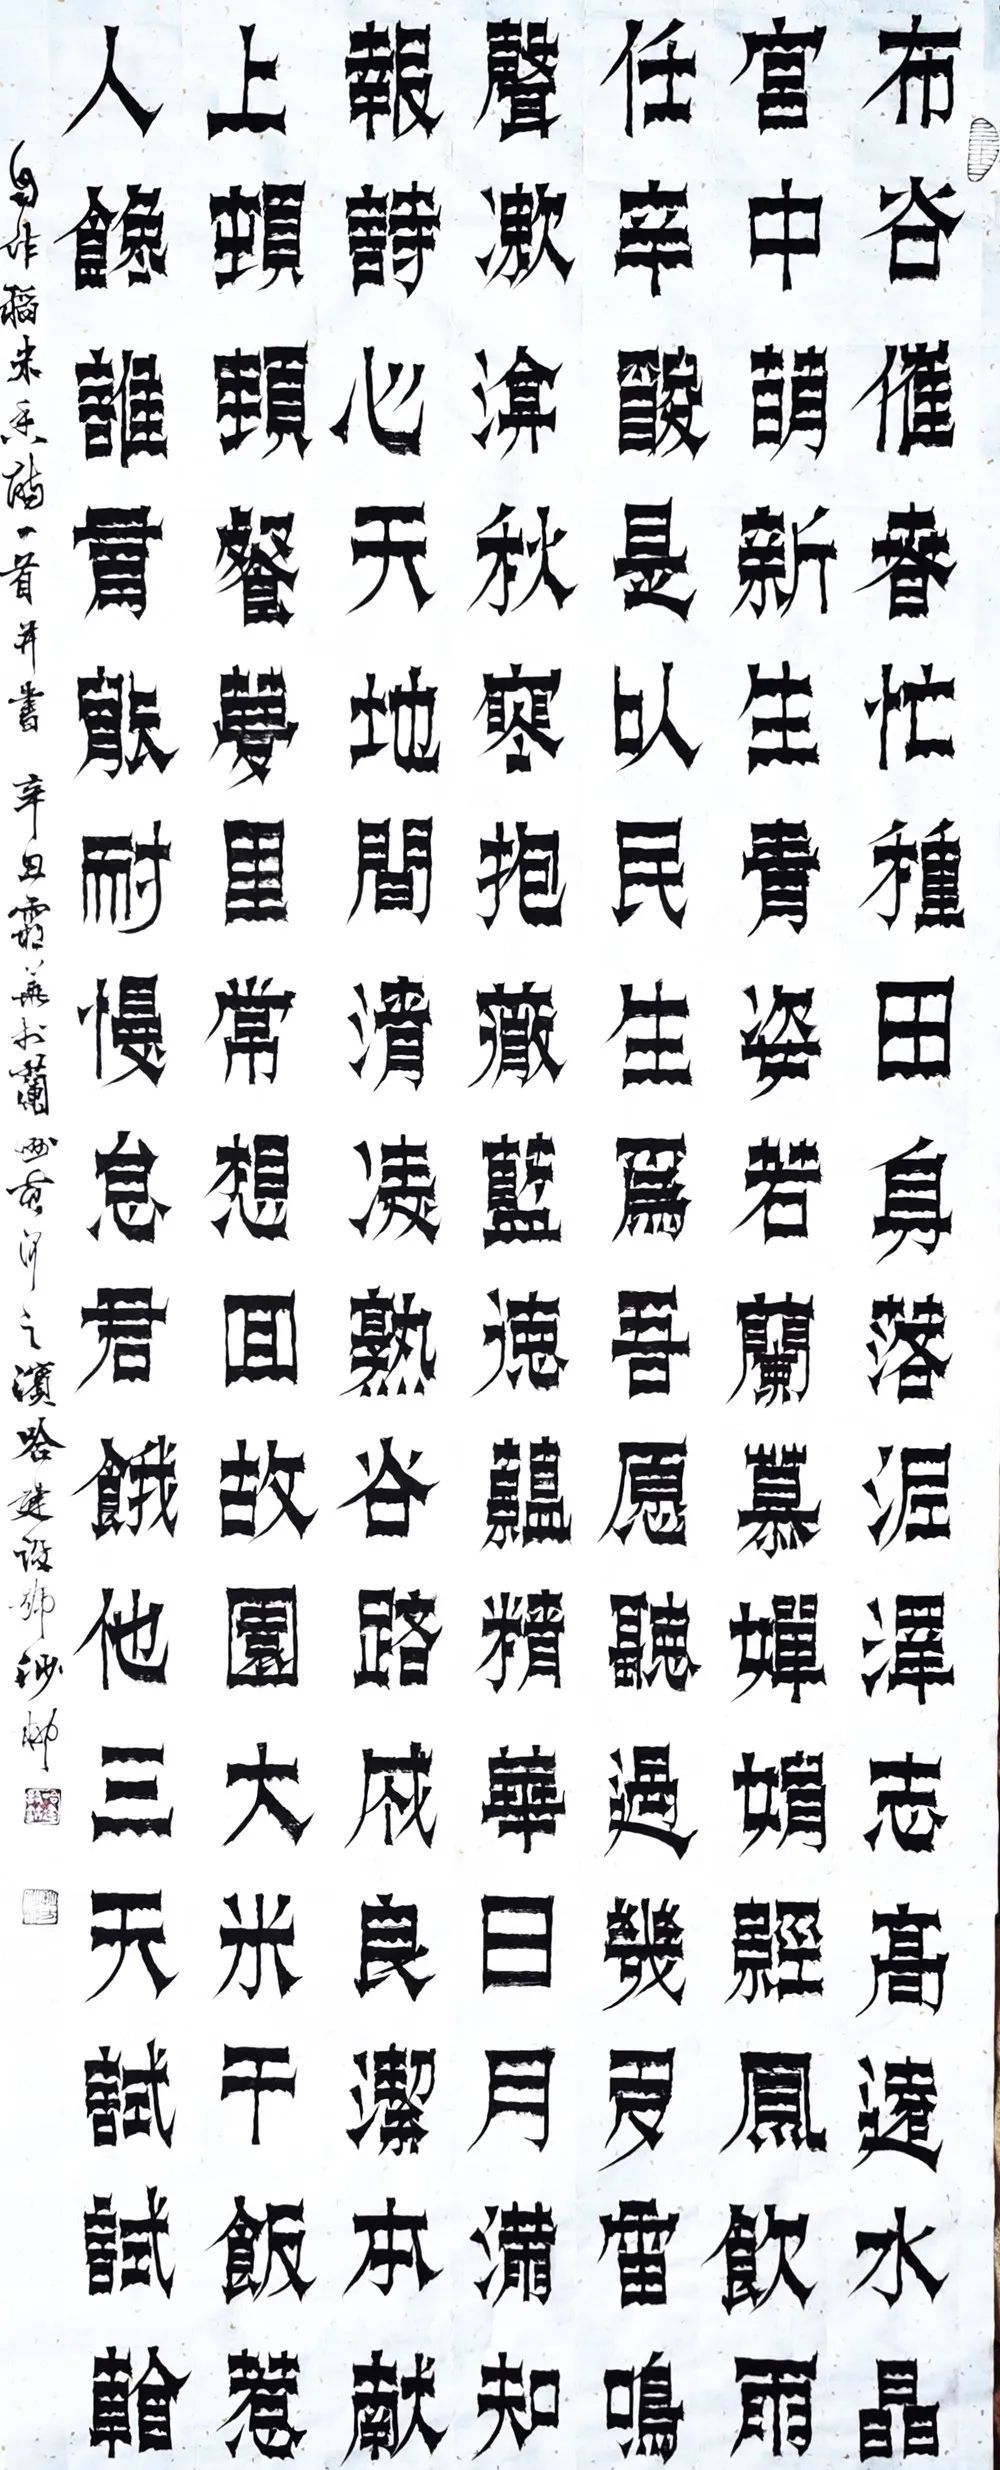 布谷催春忙種田身落泥澤志高遠水晶
宮中萌新生青姿若蘭慕嬋娟經風飲雨
任辛酸是以民生爲吾愿聽過幾更雷鳴
聲漱渰秋寒抱薇藍德蘊精華日月滿知
報詩心天地間清淒熟谷踏成良潔本献
上頓頓餐夢里常想回故園大米干飯惹
人饞誰胃能耐慢怠君餓他三天試試看
自作稻米香儲一首并書 辛丑霜華於蘭州黃河之濱 哈建設